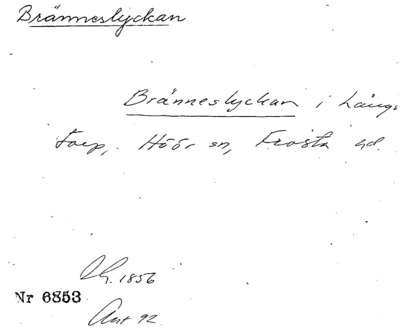 Bränneslyckan
Bränneslyckan i Långs
torp, Höör sn, Frosta hd.
Lh. 1856
Nr 6853
Ant 92